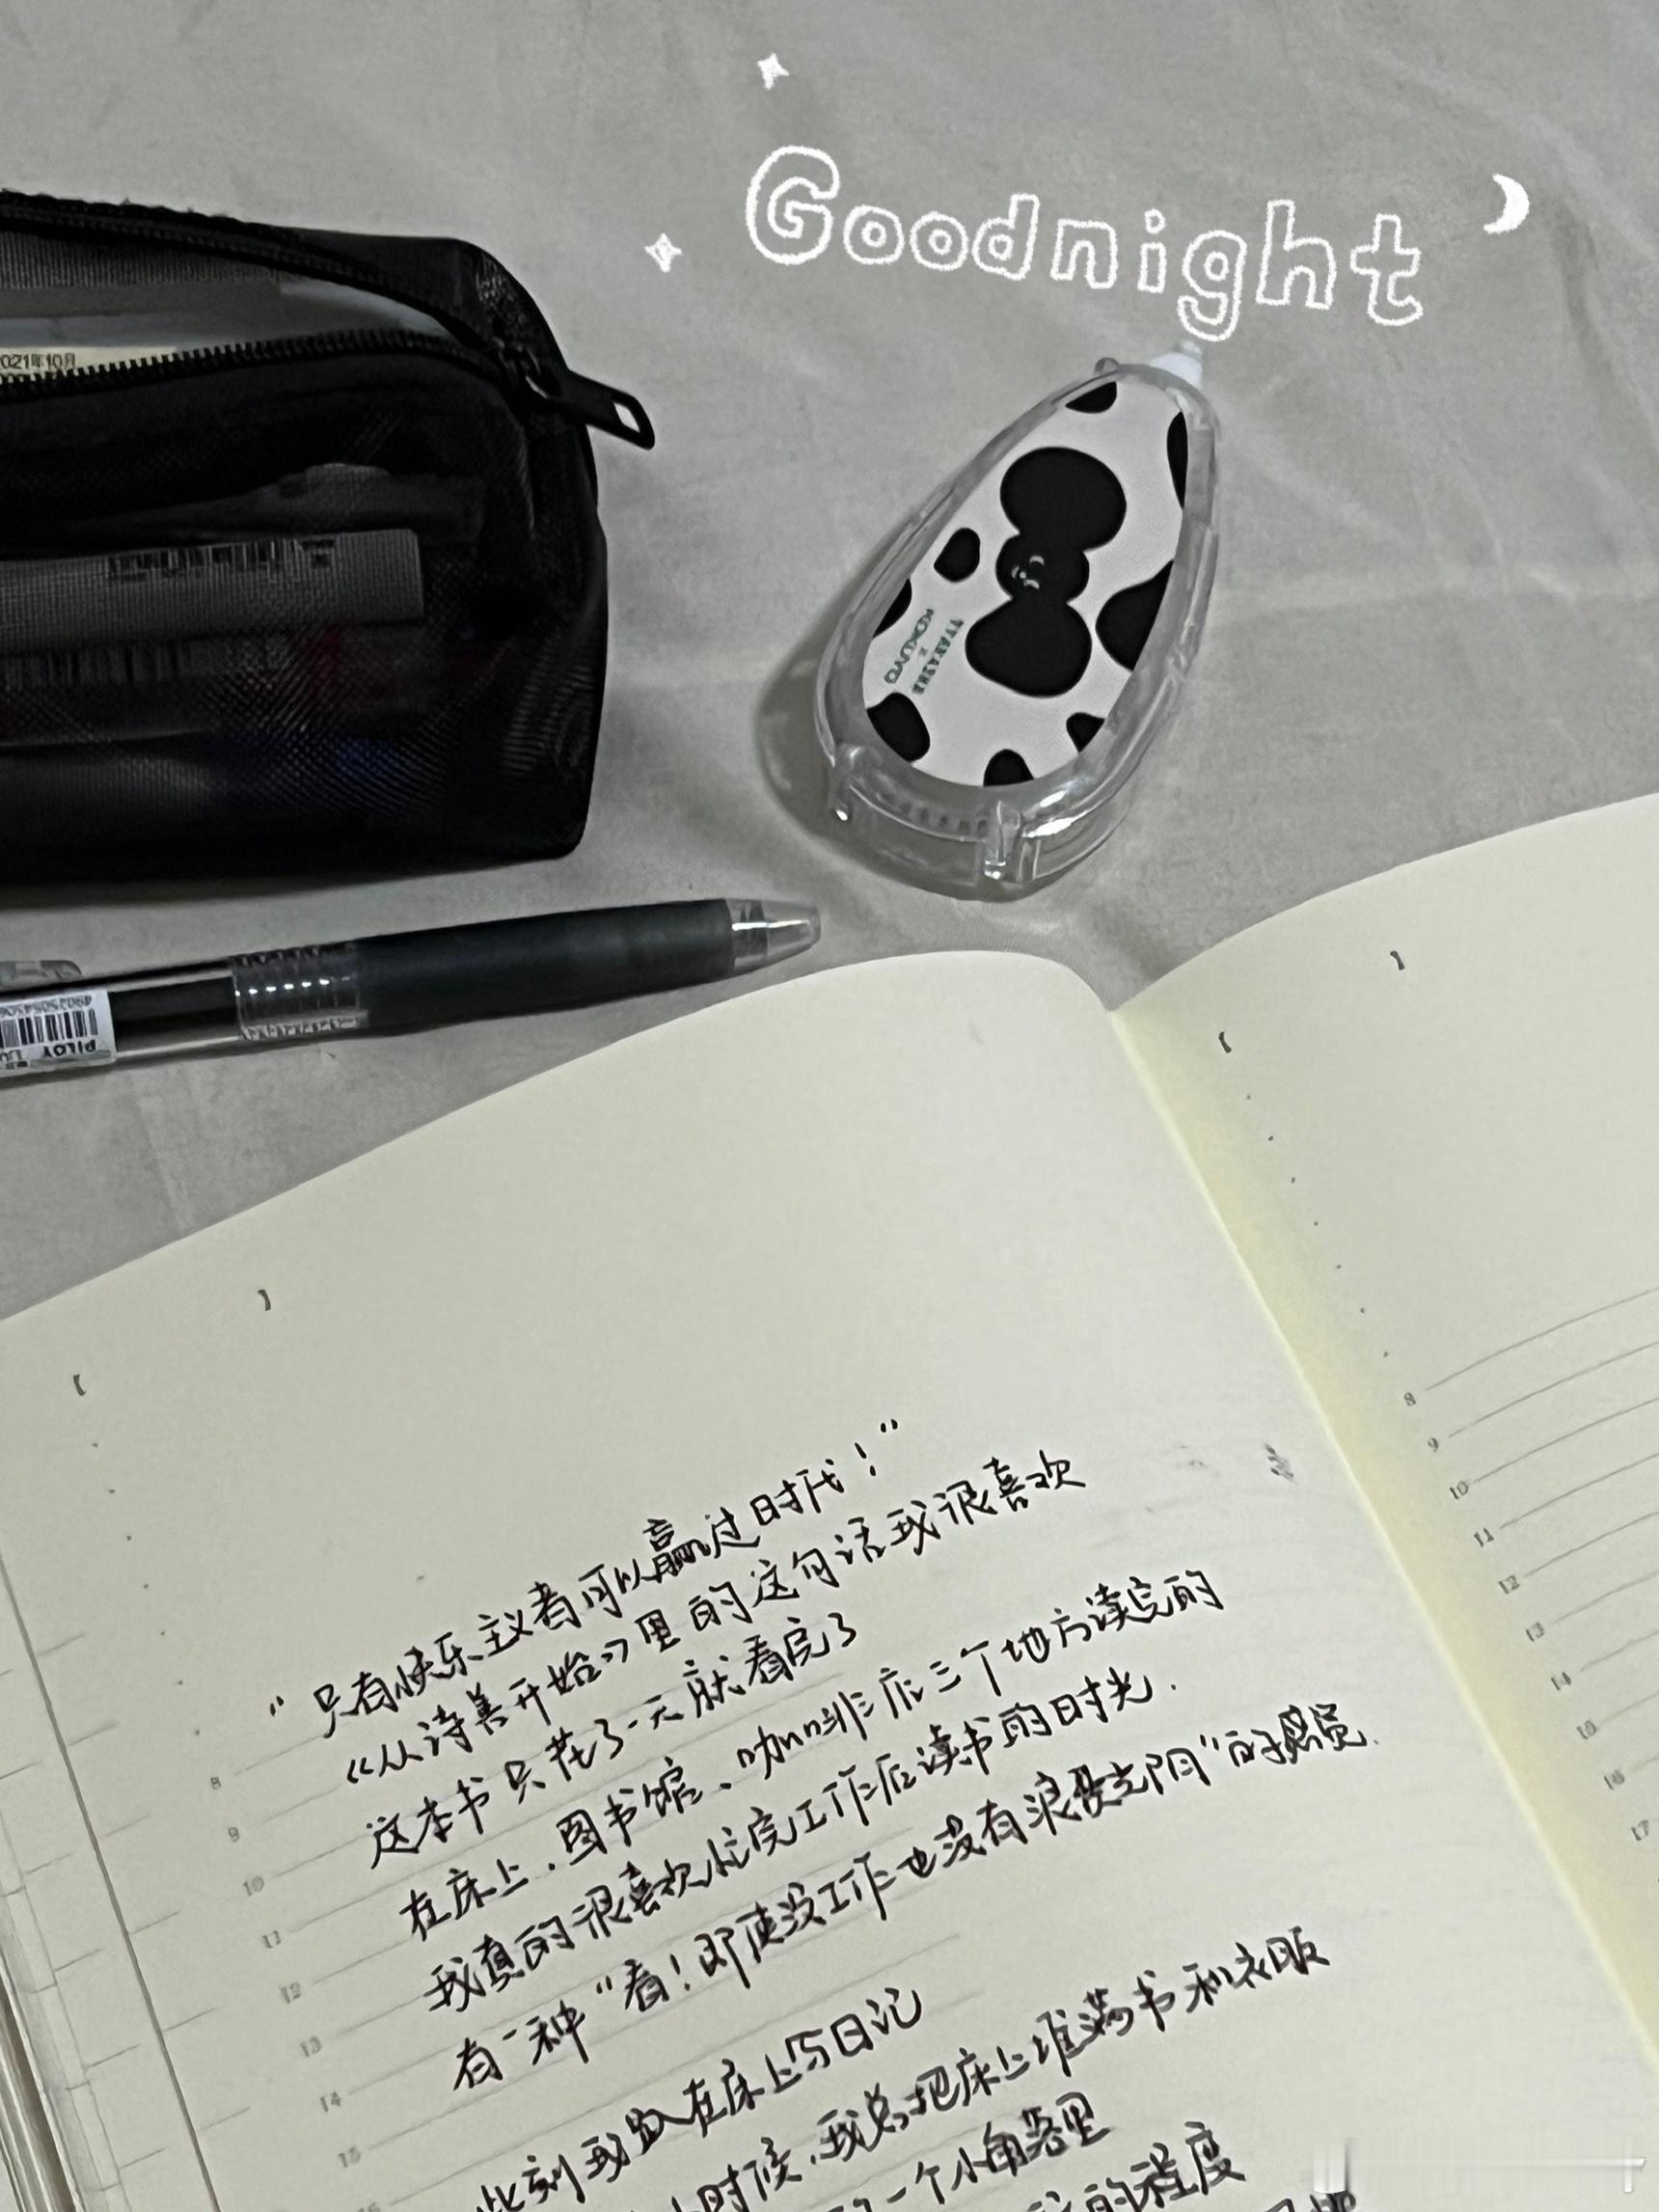 Goodnight
021年10月
KOKUYO
PILOT
"只有快乐主义者可以赢过时代！"
《从诗善开始》里的这句话我很喜欢
这本书只花了一天就看完了
在床上、图书馆、咖啡店三个地方读完的
我真的很喜欢忙完工作后读书的时光.
有一种"看！即使没工作也没有浪费光阴"的感觉.
此刻我趴在床上写日记
小时候、我总把床上堆满书和衣服
一个小角落里
的程度
8
9
10
11
12
13
14
15
8
9
10
11
12
13
14
15
16
17